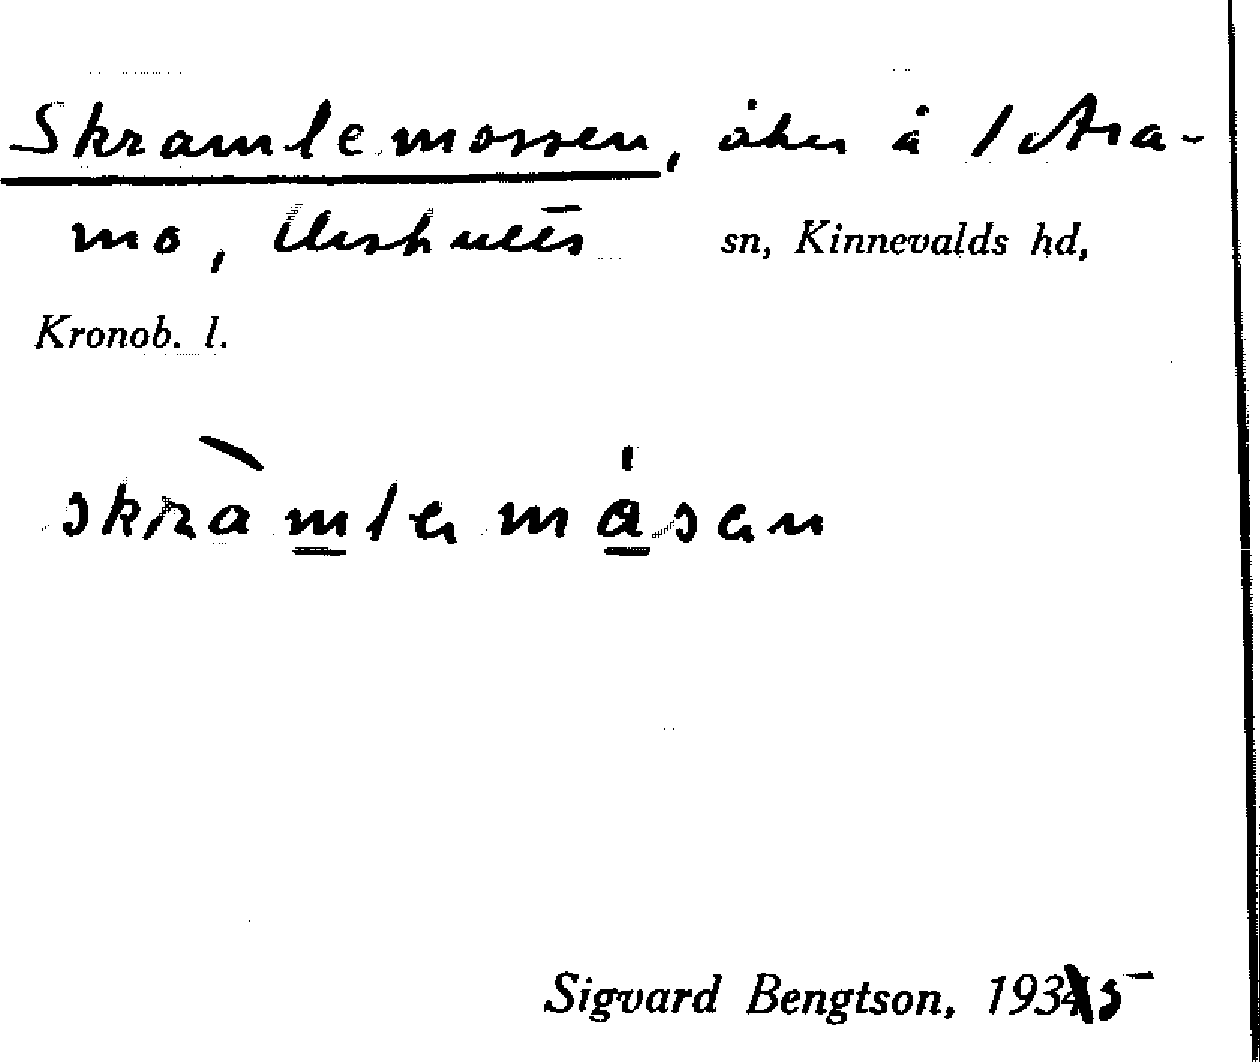 Skramlemossen, åker å 1 Stra-
mo, Urshults sn, Kinnevalds hd,
Kronob. l.
skràmlamåsan
Sigvard Bengtson, 1935